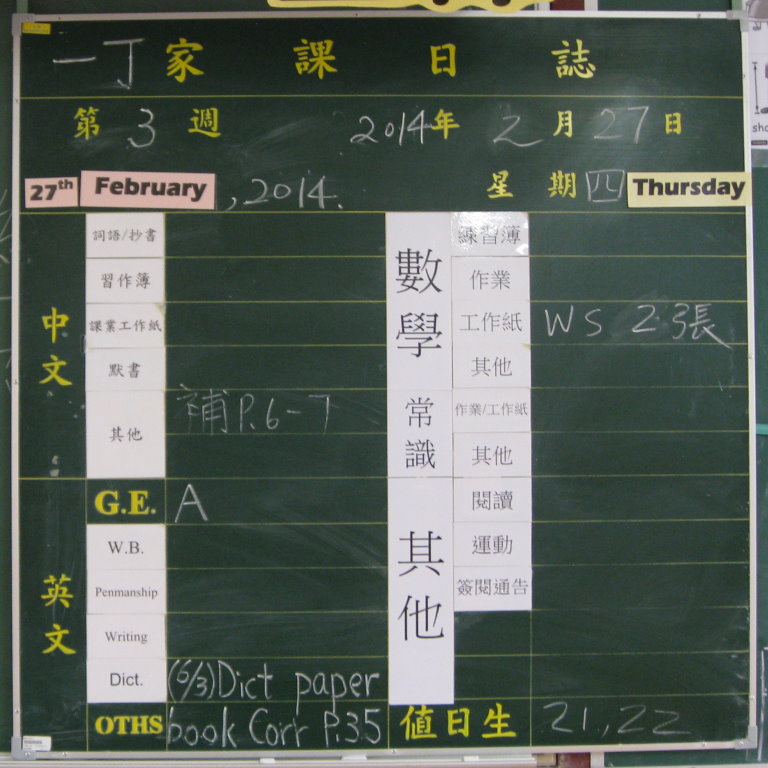 一丁家課日誌
第 3 週 2014年 2 月 27 日
27th February, 2014. 星期四 Thursday
中文
詞語/抄書
習作簿
課業工作紙
默書
其他 補P.6-7
英文
G.E. A
W.B.
Penmanship
Writing
Dict. (6/3)Dict paper
OTHS book Corr P.35
數學
練習簿
作業
工作紙 WS 2張
其他
常識
作業/工作紙
其他
其他
閱讀
運動
簽閱通告
值日生 21,22